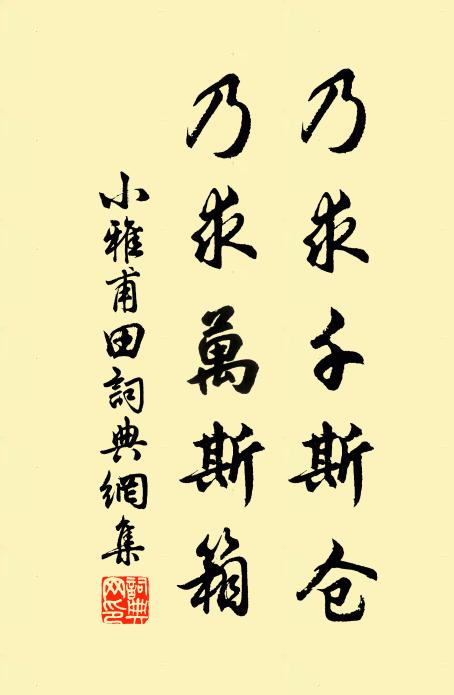 乃求千斯仓
乃求萬斯箱
小雅甫田詞典網集
詞典
网印